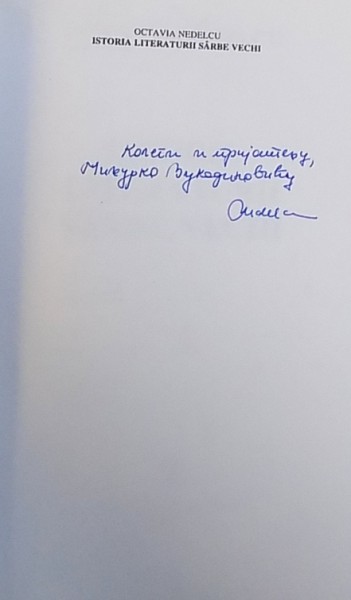 OCTAVIA NEDELCU
ISTORIA LITERATURII SÂRBE VECHI
Колеги и пријатељу,
Миљурко Вукадиновићу